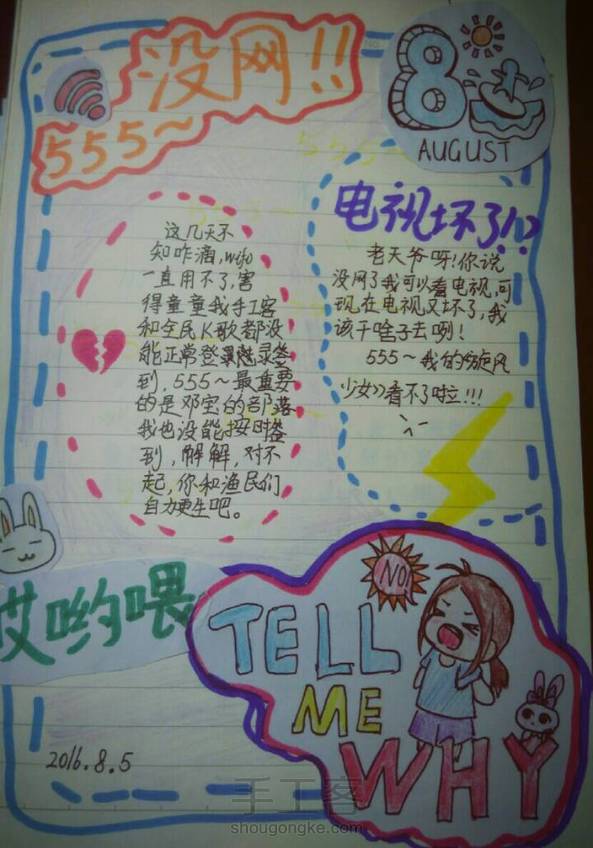 没网!!
555~
8
AUGUST
这几天不
知咋滴,wifi
一直用不了,害
得童童我手工客
和全民K歌都没
能正常登录签
到,555~最重要
的是邓宝的部落
我也没能按时签
到,解解,对不
起,你和渔民们
自力更生吧。
电视坏了!?
老天爷呀!你说
没网了我可以看电视,可
现在电视又坏了,我
该干啥子去咧!
555~我的《旋风
少女》看不了啦!!!
哎哟喂
NO!
TELL
ME
WHY
2016.8.5
手工客
shougongke.com